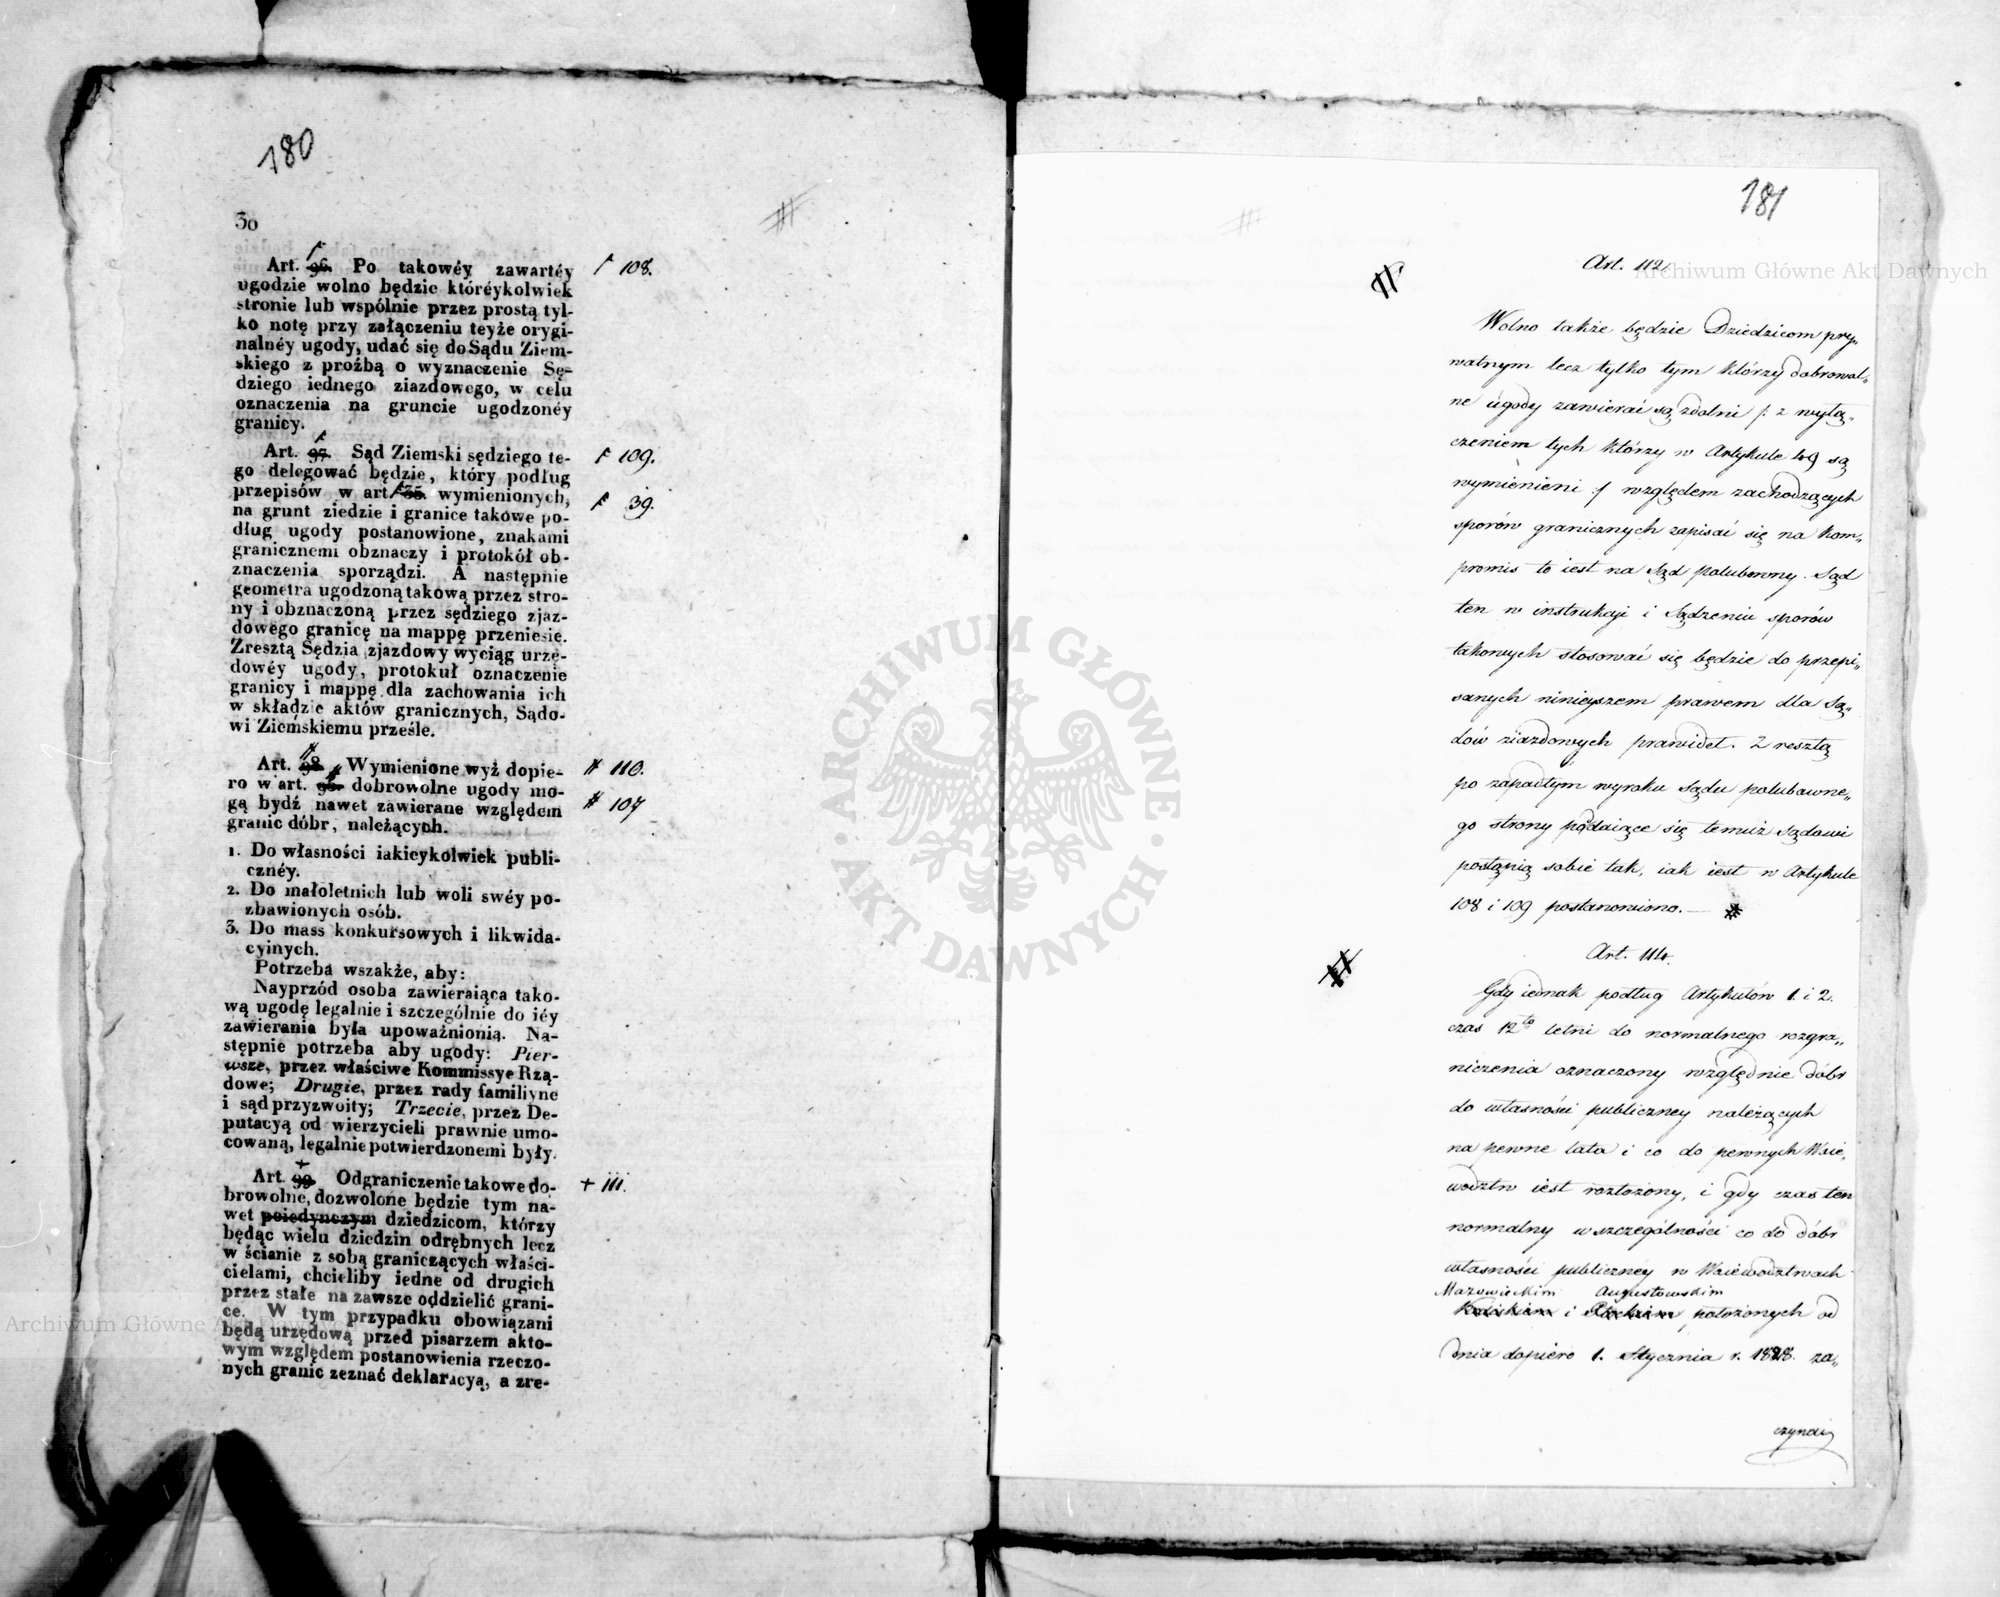 180
30
Art. 96. Po takowéy zawartéy
ugodzie wolno będzie któréykolwiek
stronie lub wspólnie przez prostą tyl-
ko notę przy załączeniu teyże orygi-
nalnéy ugody, udać się do Sądu Ziem-
skiego z proźbą o wyznaczenie Sę-
dziego iednego ziazdowego, w celu
oznaczenia na gruncie ugodzonéy
granicy.
108.
Art. 97. Sąd Ziemski sędziego te-
go delegować będzie, który podług
przepisów w art. 35. wymienionych,
na grunt ziedzie i granice takowe po-
dług ugody postanowione, znakami
granicznemi obznaczy i protokół ob-
znaczenia sporządzi. A następnie
geometra ugodzoną takową przez stro-
ny i obznaczoną przez sędziego zjaz-
dowego granicę na mappę przeniesie.
Zresztą Sędzia zjazdowy wyciąg urzę-
dowéy ugody, protokuł oznaczenie
granicy i mappę dla zachowania ich
w składzie aktów granicznych, Sądo-
wi Ziemskiemu prześle.
109.
39.
Art. 98. Wymienione wyż dopie-
ro w art. 95. dobrowolne ugody mo-
gą bydź nawet zawierane względem
granic dóbr, należących.
# 110.
# 107
1. Do własności iakieykolwiek publi-
cznéy.
2. Do małoletnich lub woli swéy po-
zbawionych osób.
3. Do mass konkursowych i likwida-
cyinych.
Potrzeba wszakże, aby:
Nayprzód osoba zawieraiąca tako-
wą ugodę legalnie i szczególnie do iéy
zawierania była upoważnionią. Na-
stępnie potrzeba aby ugody: Pier-
wsze, przez właściwe Kommissye Rzą-
dowe; Drugie, przez rady familiyne
i sąd przyzwoity; Trzecie, przez De-
putacyą od wierzycieli prawnie umo-
cowaną, legalnie potwierdzonemi były.
Art. 99. Odgraniczenie takowe do-
browolne, dozwolone będzie tym na-
wet poiedynczym dziedzicom, którzy
będąc wielu dziedzin odrębnych lecz
w ścianie z sobą graniczących właści-
cielami, chcieliby iedne od drugich
przez stałe na zawsze oddzielić grani-
ce. W tym przypadku obowiązani
będą urzędową przed pisarzem akto-
wym względem postanowienia rzeczo-
nych granic zeznać deklaracyą, a zre-
+ 111.
181
Art. 112.
Wolno także będzie Dziedzicom pry„
watnym lecz tylko tym którzy dobrowol„
ne ugody zawierać są zdolni /: z wyłą„
czeniem tych którzy w Artykule 49 są
wymienieni :/ względem zachodzących
sporów granicznych zapisać się na kom„
promis to iest na Sąd polubowny. Sąd
ten w instrukcji i Sądzeniu sporów
takowych stosować się będzie do przepi„
sanych ninieyszem prawem dla Są„
dów ziazdowych prawideł. Z resztą
po zapadłym wyroku Sądu polubowne„
go strony poddaiące się temuż Sądowi
postąpią sobie tak, iak iest w Artykule
108 i 109 postanowiono. — #
Art. 114.
Gdy iednak podług Artykułów 1. i 2.
czas 12to letni do normalnego rozgra„
niczenia oznaczony względnie dóbr
do własności publiczney należących
na pewne lata i co do pewnych Woie„
wodztw iest rozłożony, i gdy czas ten
normalny w szczególności co do dóbr
własności publiczney w Woiewodztwach
Mazowieckim Augustowskim
Kaliskim i Płockim położonych od
dnia dopiero 1. Stycznia r. 1828. za„
czynać
ARCHIWUM GŁÓWNE · AKT DAWNYCH ·
Archiwum Główne Akt Dawnych
Archiwum Główne Akt Dawnych